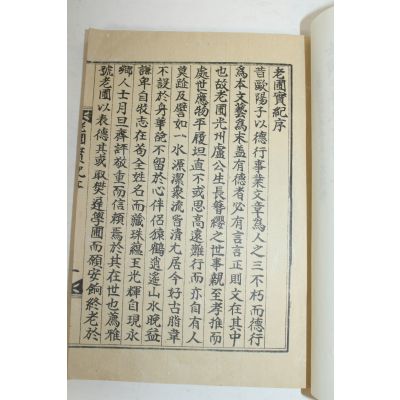 老圃實紀序
昔歐陽子以德行事業文章為人之三不朽而德行
為本文藝為末盖有德者必有言言正則文在其中
也故老圃光州盧公生長簪纓之世事親至孝推而
處世應物平履坦直不或思高遠難行而亦自有人
莫趁及譬如一水派灑衆流皆清尤居今好古脂韋
不誤於舟華婉不留於心伴侶猿鶴逍遙山水晚益
謙卑自牧志在苟全姓名而藏珠蘊玉光輝自現永
鄕人士月旦齊評敬重而信頼焉於其在世也薦雅
號老圃以表德其或取樊遲學圃而願安餉終老於
老圃實紀序